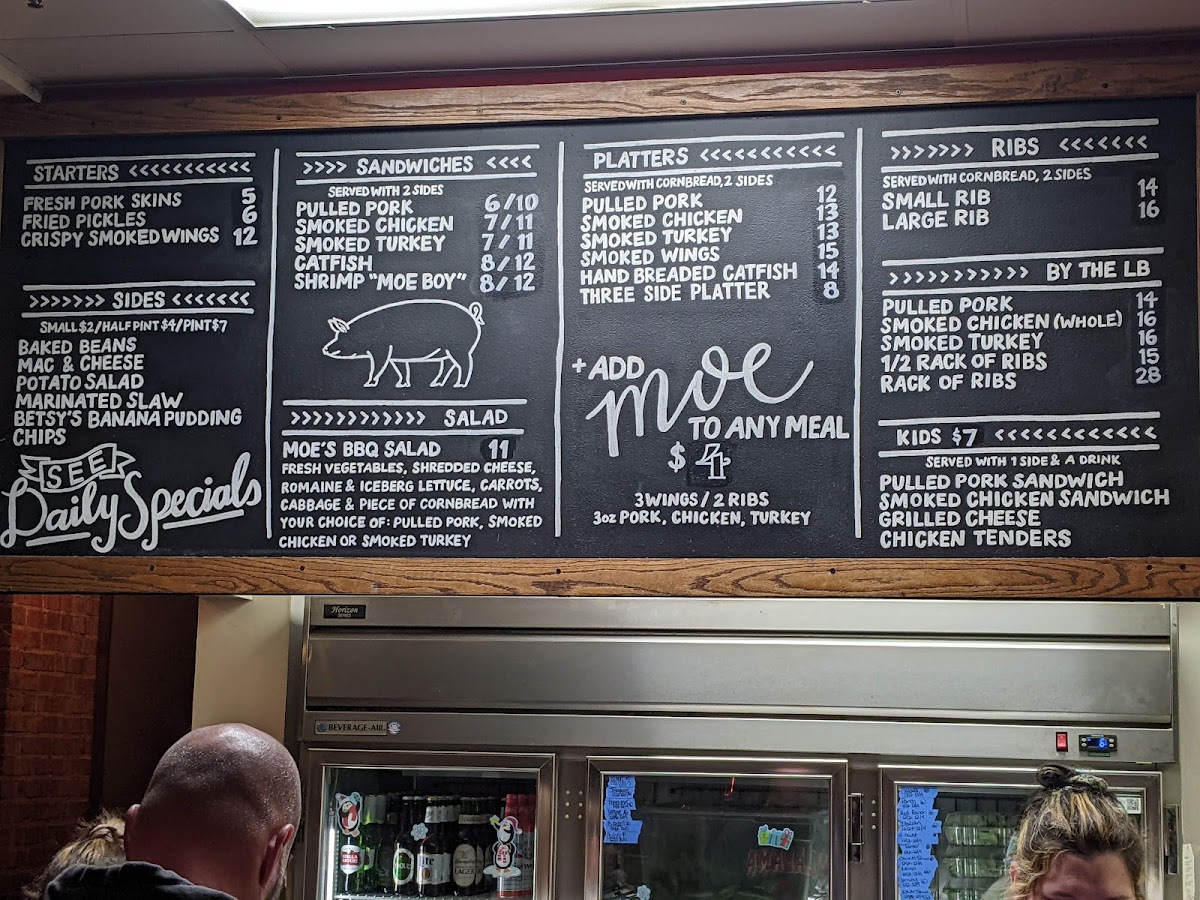 STARTERS <<<<<<<<<<<
FRESH PORK SKINS 5
FRIED PICKLES 6
CRISPY SMOKED WINGS 12
>>>>>>> SIDES <<<<<<<
SMALL $2/HALF PINT $4/PINT $7
BAKED BEANS
MAC & CHEESE
POTATO SALAD
MARINATED SLAW
BETSY'S BANANA PUDDING
CHIPS
SEE
Daily Specials
>>>> SANDWICHES <<<<
SERVED WITH 2 SIDES
PULLED PORK 6/10
SMOKED CHICKEN 7/11
SMOKED TURKEY 7/11
CATFISH 8/12
SHRIMP "MOE BOY" 8/12
>>>>>>>>>>>> SALAD
MOE'S BBQ SALAD 11
FRESH VEGETABLES, SHREDDED CHEESE,
ROMAINE & ICEBERG LETTUCE, CARROTS,
CABBAGE & PIECE OF CORNBREAD WITH
YOUR CHOICE OF: PULLED PORK, SMOKED
CHICKEN OR SMOKED TURKEY
PLATTERS <<<<<<<<<<<<
SERVED WITH CORNBREAD, 2 SIDES
PULLED PORK 12
SMOKED CHICKEN 13
SMOKED TURKEY 13
SMOKED WINGS 15
HAND BREADED CATFISH 14
THREE SIDE PLATTER 8
+ADD
moe
TO ANY MEAL
$4
3 WINGS / 2 RIBS
3oz PORK, CHICKEN, TURKEY
>>>>>>> RIBS <<<<<<<
SERVED WITH CORNBREAD, 2 SIDES
SMALL RIB 14
LARGE RIB 16
>>>>>>>>>>> BY THE LB
PULLED PORK 14
SMOKED CHICKEN (WHOLE) 16
SMOKED TURKEY 16
1/2 RACK OF RIBS 15
RACK OF RIBS 28
KIDS $7 <<<<<<<<<<<<<
SERVED WITH 1 SIDE & A DRINK
PULLED PORK SANDWICH
SMOKED CHICKEN SANDWICH
GRILLED CHEESE
CHICKEN TENDERS
Horizon
SERIES
BEVERAGE-AIR
LAGER